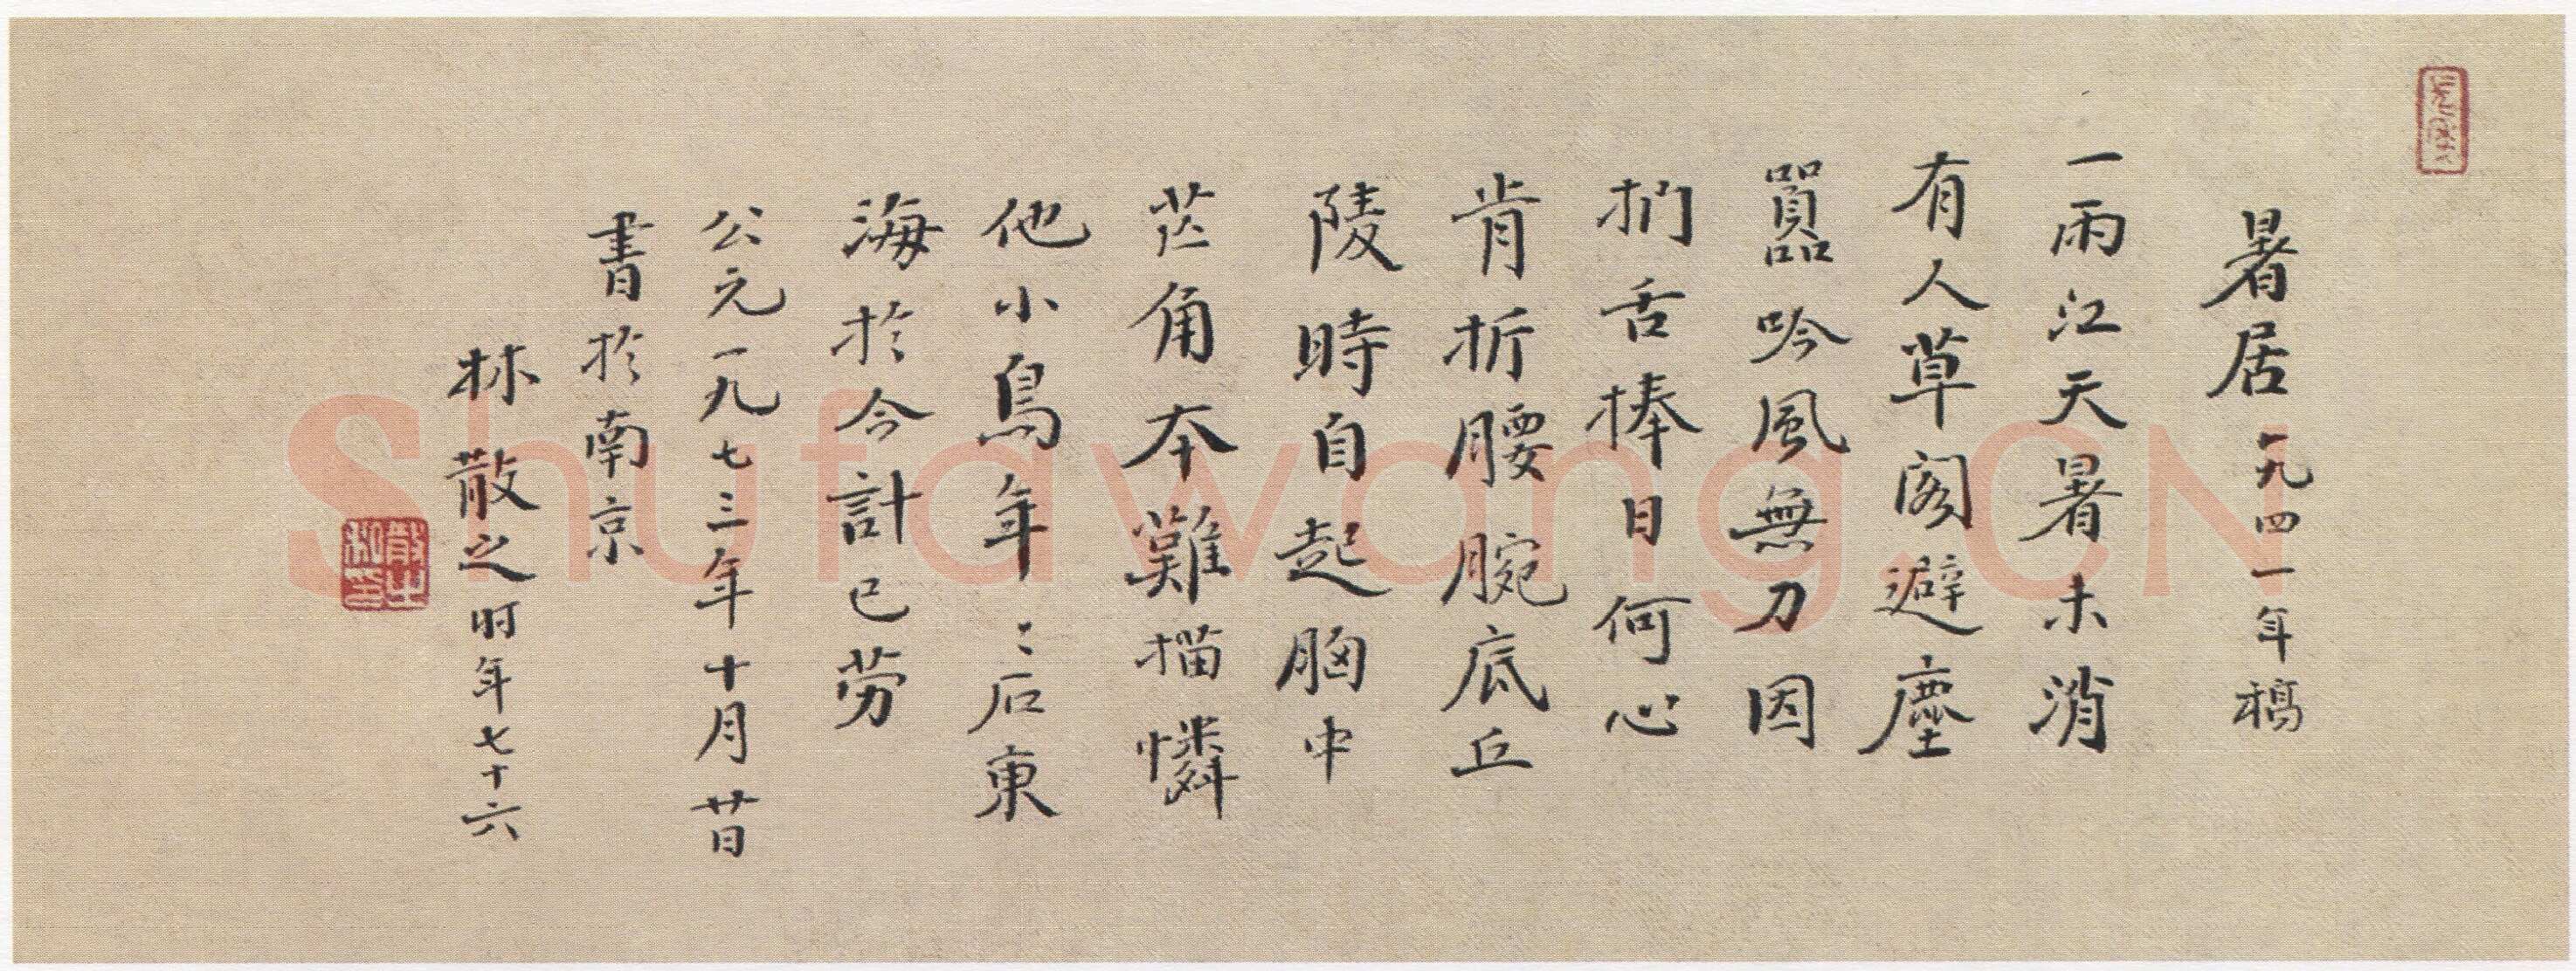 暑居 一九四一年稿
一雨江天暑未消
有人草閣避塵
囂吟風無力因
捫舌捧日何心
肯折腰腕底丘
陵時自起胸中
芒角本難描憐
他小鳥年〻石東
海於今計已勞
公元一九七三年十月昔
書於南京
林散之时年七十六
Shufawang.CN